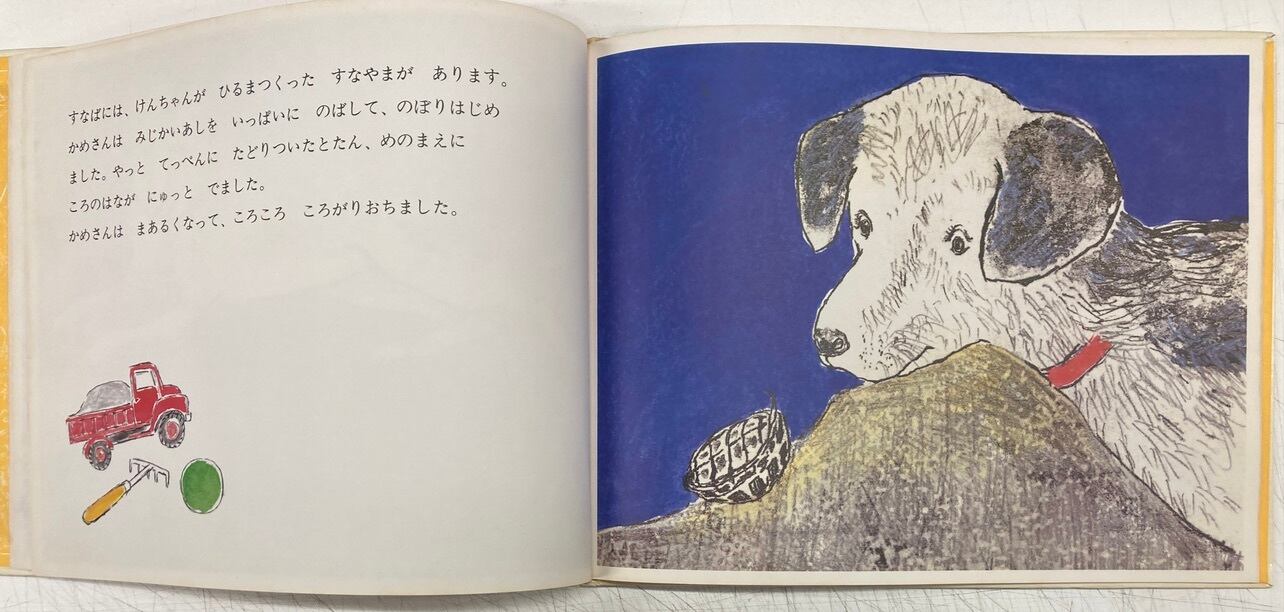 すなばには、けんちゃんが ひるまつくった すなやまが あります。
かめさんは みじかいあしを いっぱいに のばして、のぼりはじめ
ました。やっと てっぺんに たどりついたとたん、めのまえに
ころのはなが にゅっと でました。
かめさんは まあるくなって、ころころ ころがりおちました。